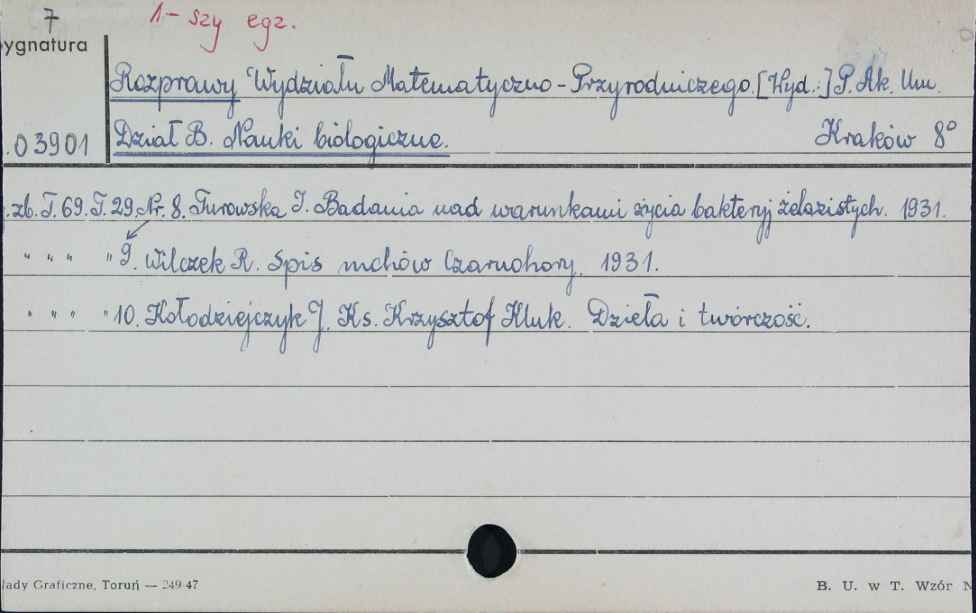 7 1-szy egz.
ygnatura
Rozprawy Wydziału Matematyczno-Przyrodniczego. [Wyd.:] P. Ak. Um.
03901 Dział B. Nauki biologiczne. Kraków 8°
zb. T. 69. T. 29. Nr. 8. Turowska I. Badania nad warunkami życia bakteryj żelazistych. 1931.
" " " " 9. Wilczek R. Spis mchów Czarnohory. 1931.
" " " " 10. Kołodziejczyk J. Ks. Krzysztof Kluk. Dzieła i twórczość.
łady Graficzne, Toruń — 249 47 B. U. w T. Wzór N